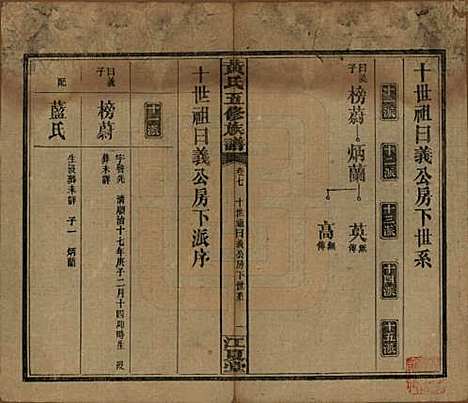 十世祖日義公房下世系
十一派
十二派
十三派
十四派
十五派
日義子
榜蔚
炳蘭
英 傳
高 傳
黃氏五修族譜
卷七
十世祖日義公房下世系
一
江夏堂
十世祖日義公房下派序
十二派
日義子
榜蔚
字啓先
清順治十七年庚子二月十四卯時生 歿
葬未詳
配
藍氏
生歿葬未詳 子一 炳蘭